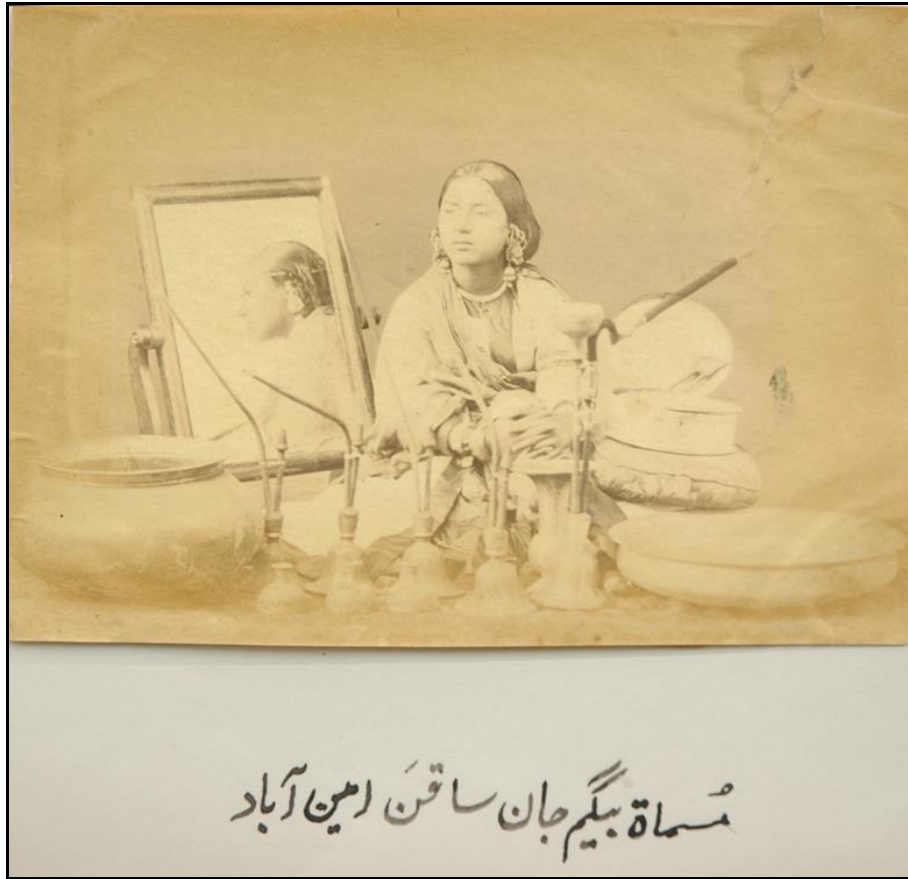 مُسماۃ بیگم جان ساقنَ امین آباد